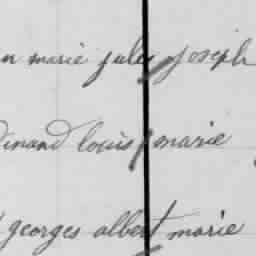 n marie jules joseph
dinand louis marie
georges albert marie